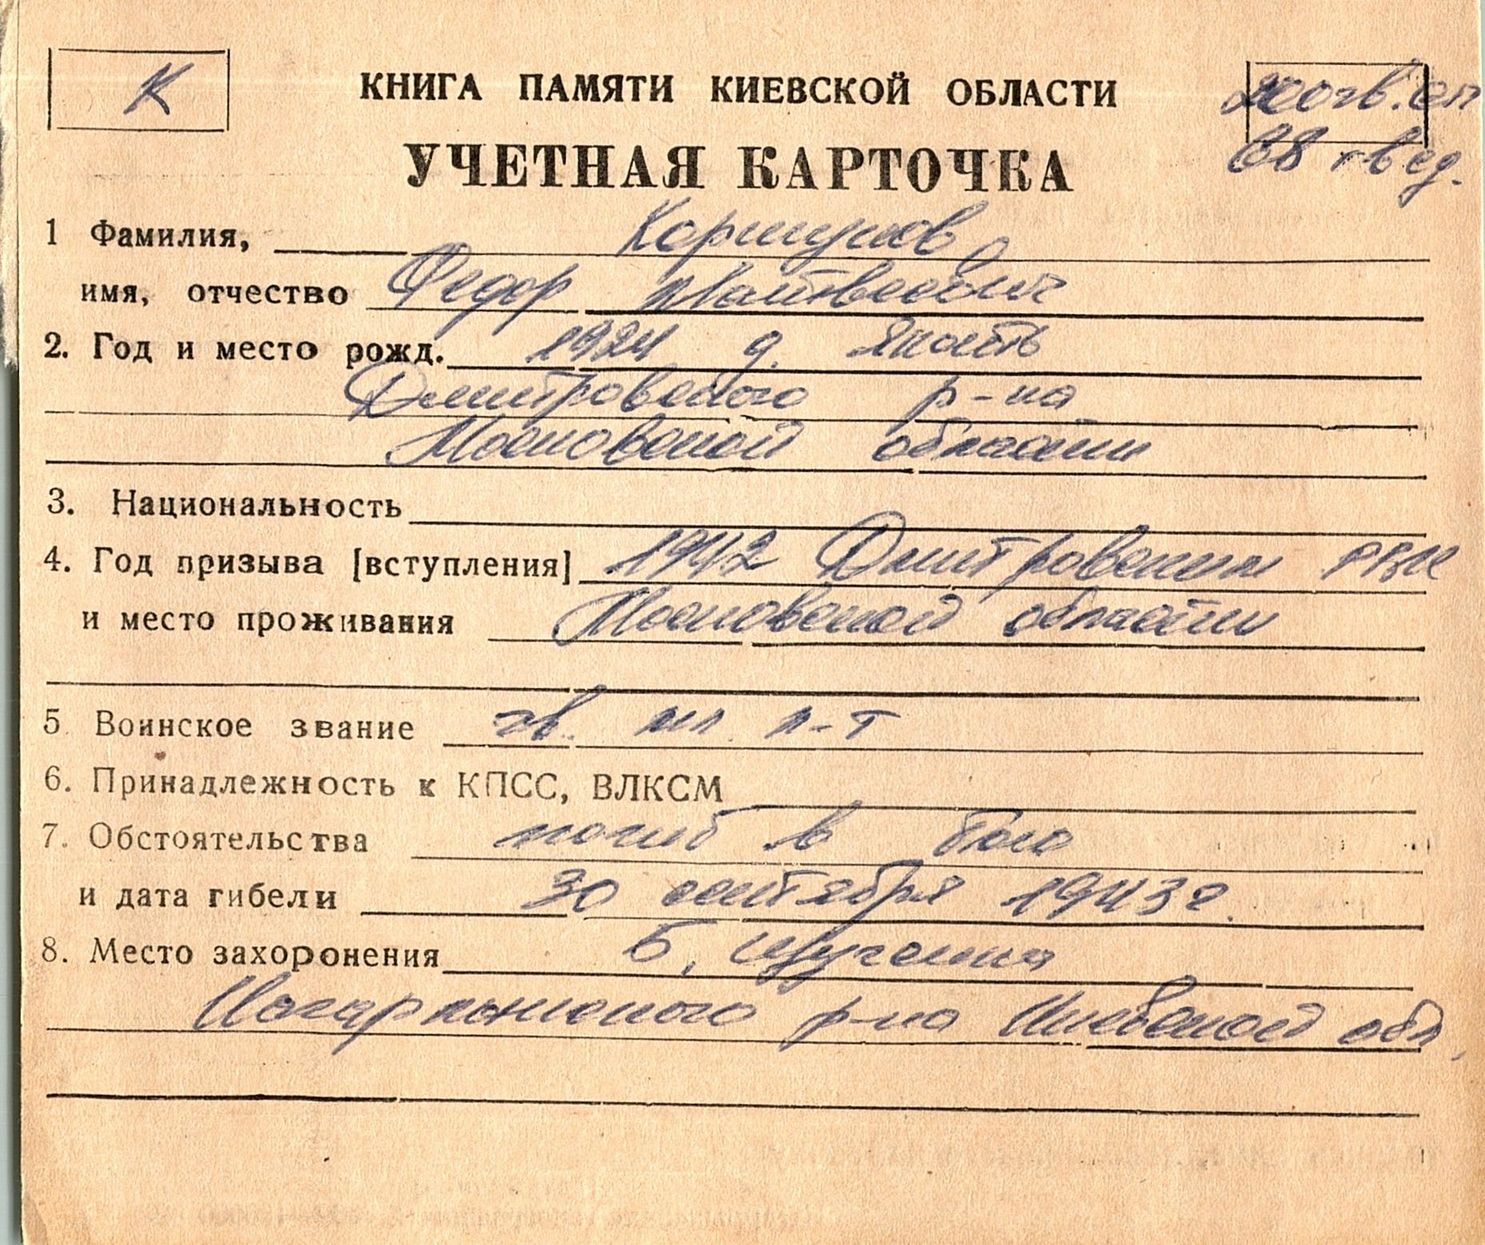 К
КНИГА ПАМЯТИ КИЕВСКОЙ ОБЛАСТИ
200 гв. сп
68 гв сд.
УЧЕТНАЯ КАРТОЧКА
1 Фамилия, Коршунов
имя, отчество Федор Матвеевич
2. Год и место рожд. 1924 д. Якоть
Дмитровского р-на
Московской области
3. Национальность
4. Год призыва [вступления] 1942 Дмитровским РВК
и место проживания Московской области
5 Воинское звание гв. мл. л-т
6. Принадлежность к КПСС, ВЛКСМ
7. Обстоятельства погиб в бою
и дата гибели 30 сентября 1943 г.
8. Место захоронения Б. Щучинка
Кагарлыкского р-на Киевской обл.